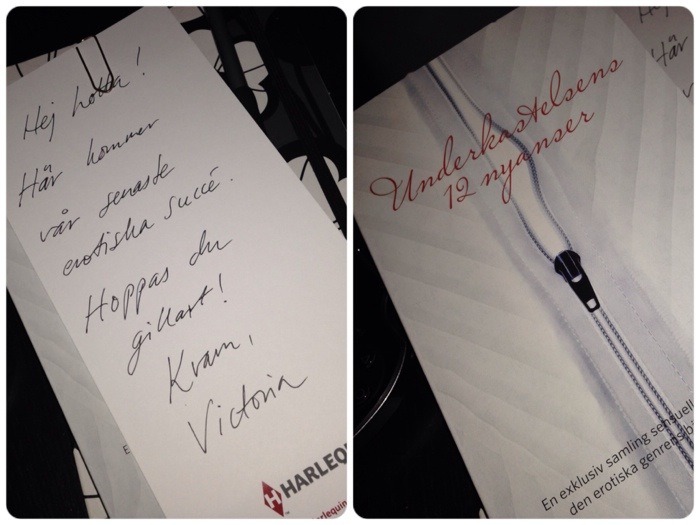 Hej hotta!
Här kommer
vår senaste
erotiska succé.
Hoppas du
gillart!
Kram,
Victoria
HARLEQU
rlequin
E
Hej
Här
Underkastelsens
12 nyanser
En exklusiv samling sensuell
den erotiska genrens b